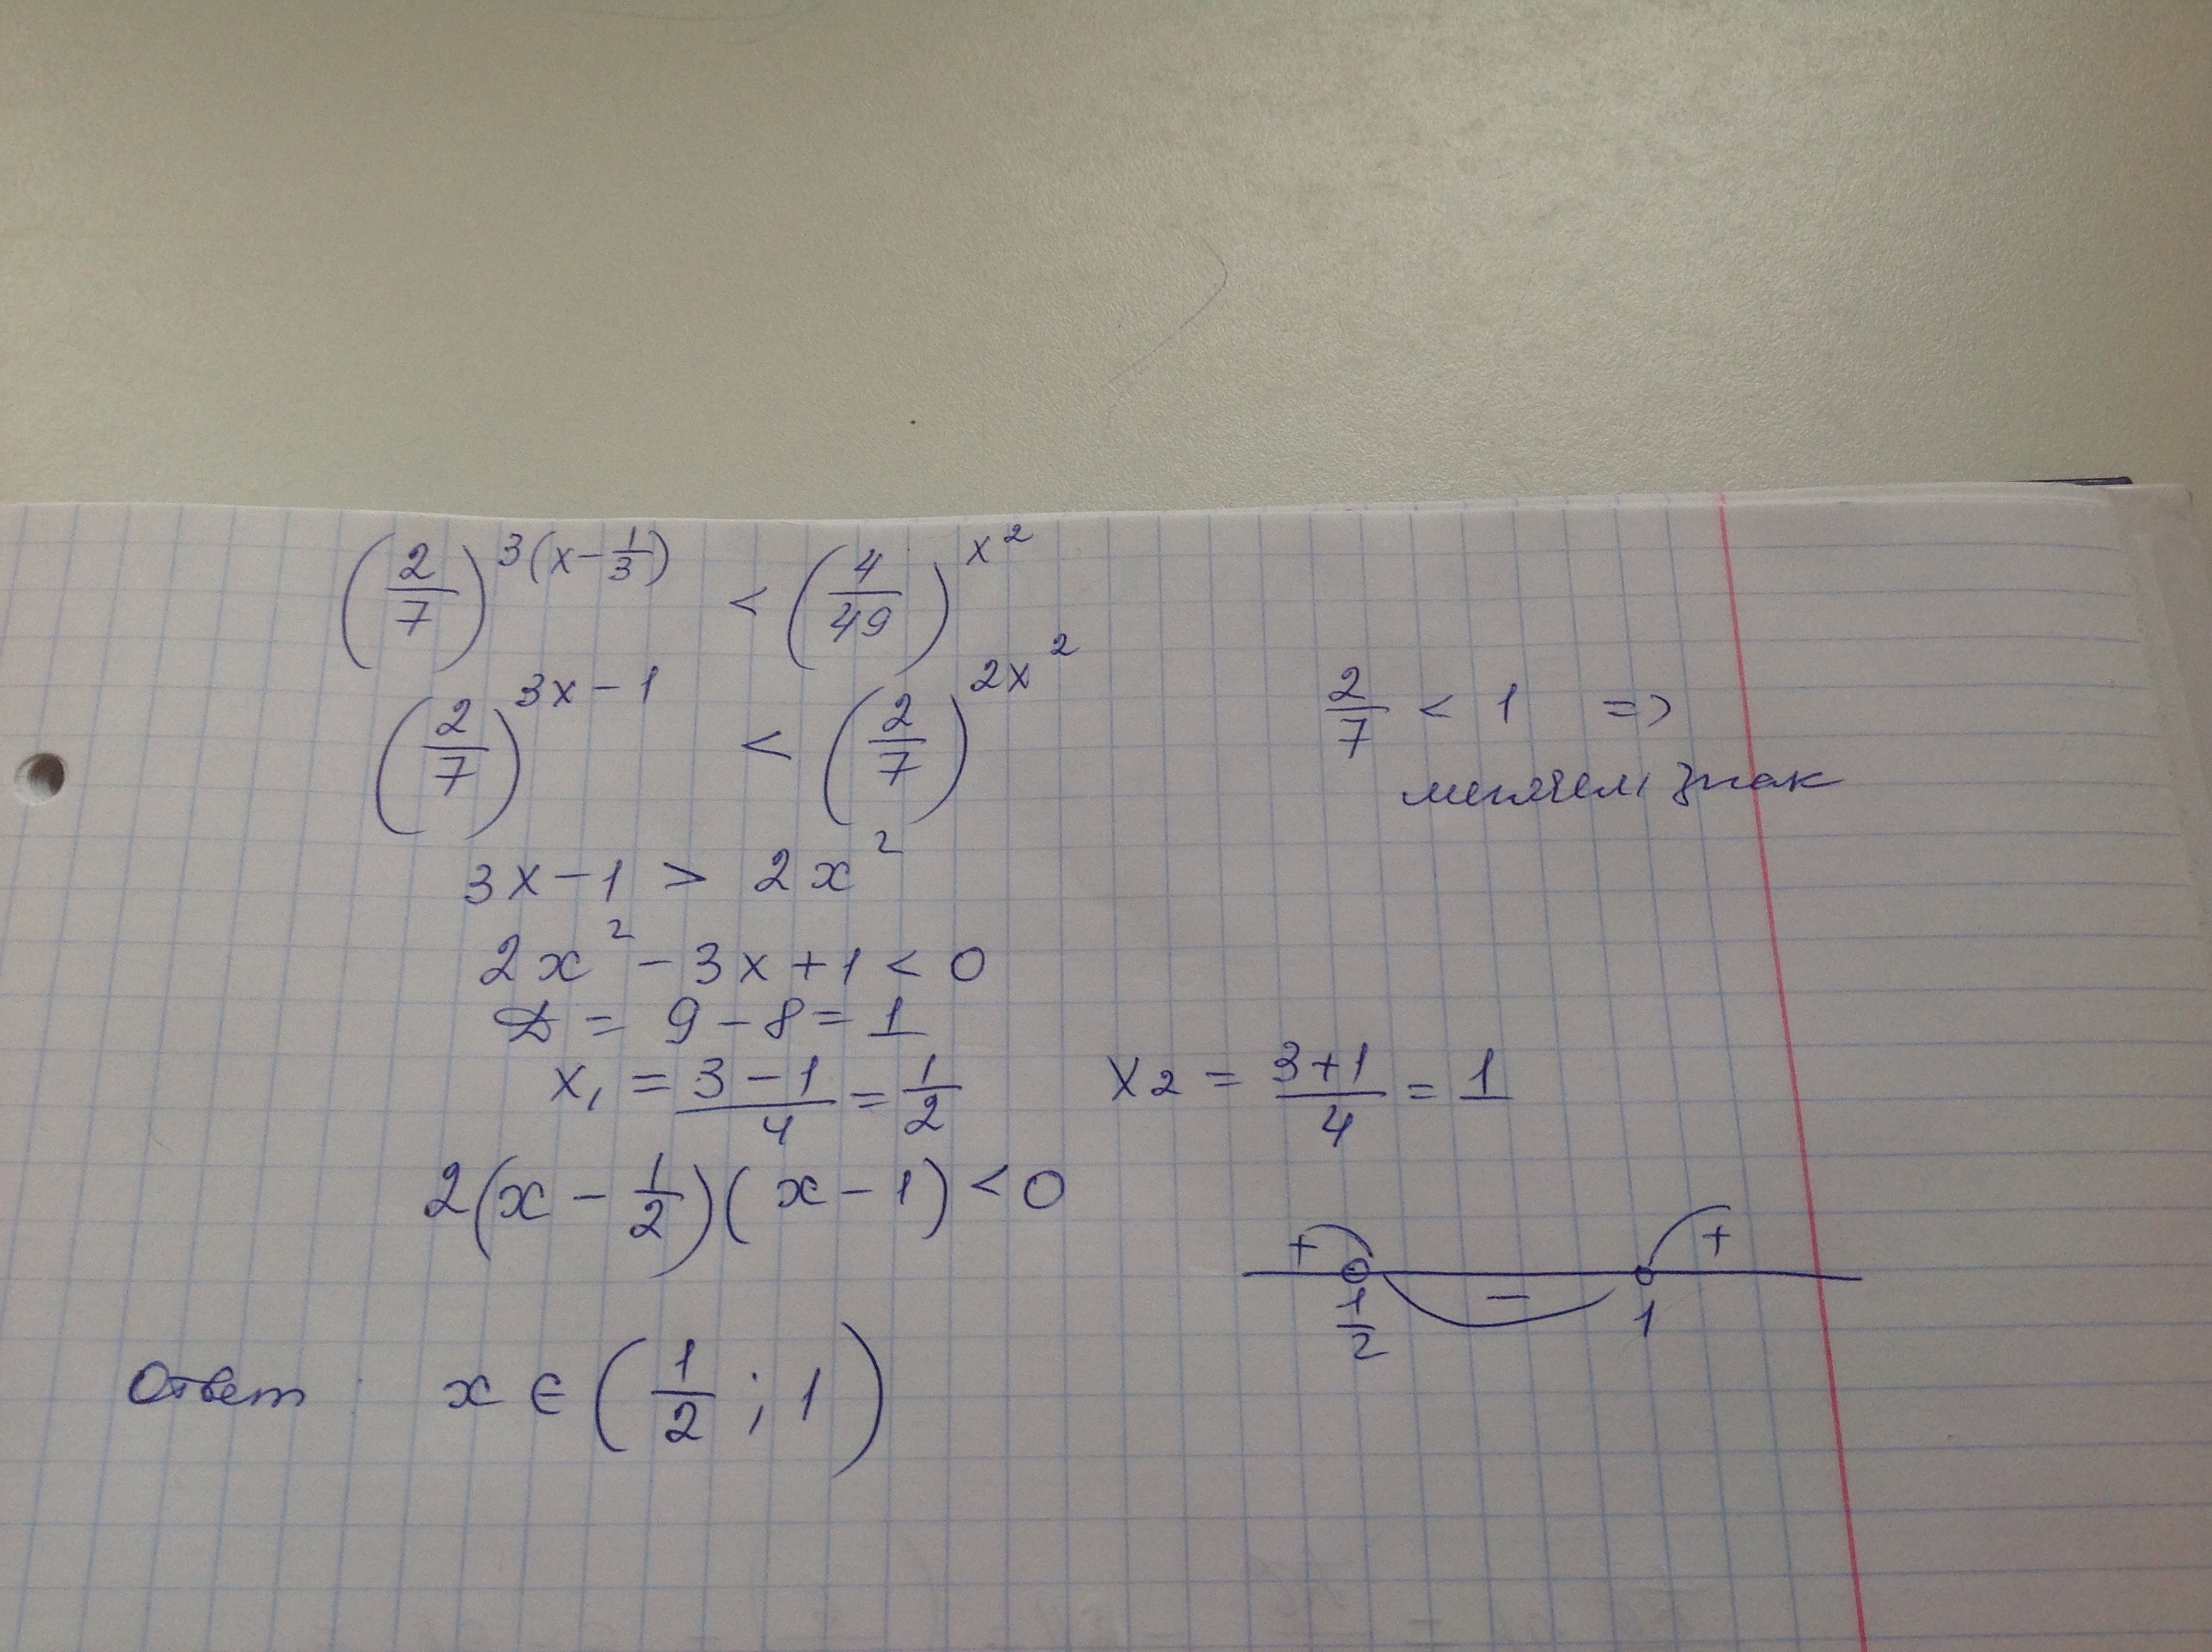 (2/7)^{3(x-1/3)} < (4/49)^{x^2}
(2/7)^{3x-1} < (2/7)^{2x^2}
2/7 < 1 =>
меняем знак
3x-1 > 2x^2
2x^2 - 3x + 1 < 0
D = 9 - 8 = 1
x_1 = (3-1)/4 = 1/2  x_2 = (3+1)/4 = 1
2(x - 1/2)(x - 1) < 0
+ - +
1/2 1
Ответ: x ∈ (1/2 ; 1)